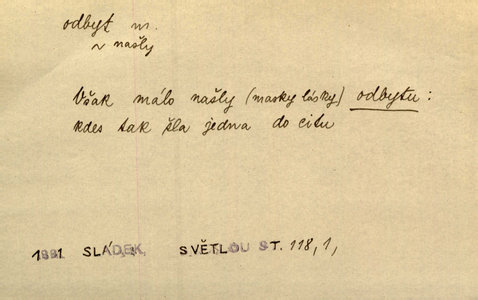 odbyt m.
~ našly
Však málo našly (masky lásky) odbytu:
kdes tak šla jedna do citu
1881 SLÁDEK, SVĚTLOU ST. 118, 1,